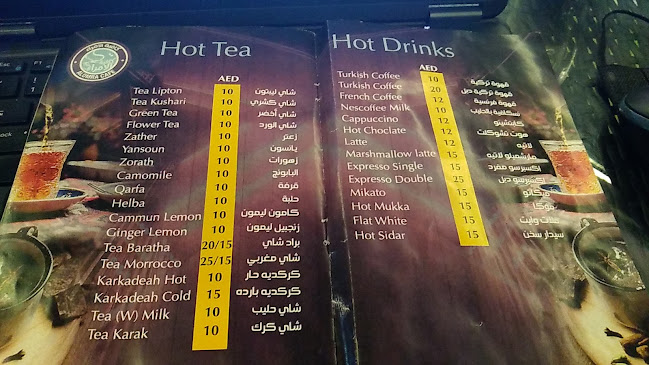 Hot Tea
AED
Tea Lipton 10 شاي ليبتون
Tea Kushari 10 شاي كشري
Green Tea 10 شاي أخضر
Flower Tea 10 شاي الورد
Zather 10 زعتر
Yansoun 10 يانسون
Zorath 10 زهورات
Camomile 10 البابونج
Qarfa 10 قرفة
Helba 10 حلبة
Cammun Lemon 10 كامون ليمون
Ginger Lemon 10 زنجبيل ليمون
Tea Baratha 20/15 براد شاي
Tea Morrocco 25/15 شاي مغربي
Karkadeah Hot 10 كركديه حار
Karkadeah Cold 15 كركديه بارده
Tea (W) Milk 10 شاي حليب
Tea Karak 10 شاي كرك
Hot Drinks
AED
Turkish Coffee 10 قهوة تركية
Turkish Coffee 20 قهوة تركية دبل
French Coffee 12 قهوة فرنسية
Nescoffee Milk 10 نسكافية بالحليب
Cappuccino 12 كابتشينو
Hot Choclate 12 هوت شوكلات
Latte 12 لاتيه
Marshmallow latte 15 مارشميلو لاتيه
Expresso Single 15 اكسبرسو مفرد
Expresso Double 25 اكسبرسو دبل
Mikato 15 ميكاتو
Hot Mukka 15 موكا
Flat White 15 فلات وايت
Hot Sidar 15 سيدار سخن